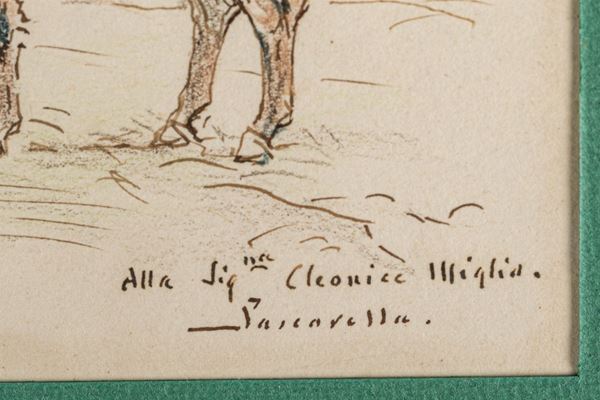 Alla Sig.na Cleonice Miglio.
Pascarella.